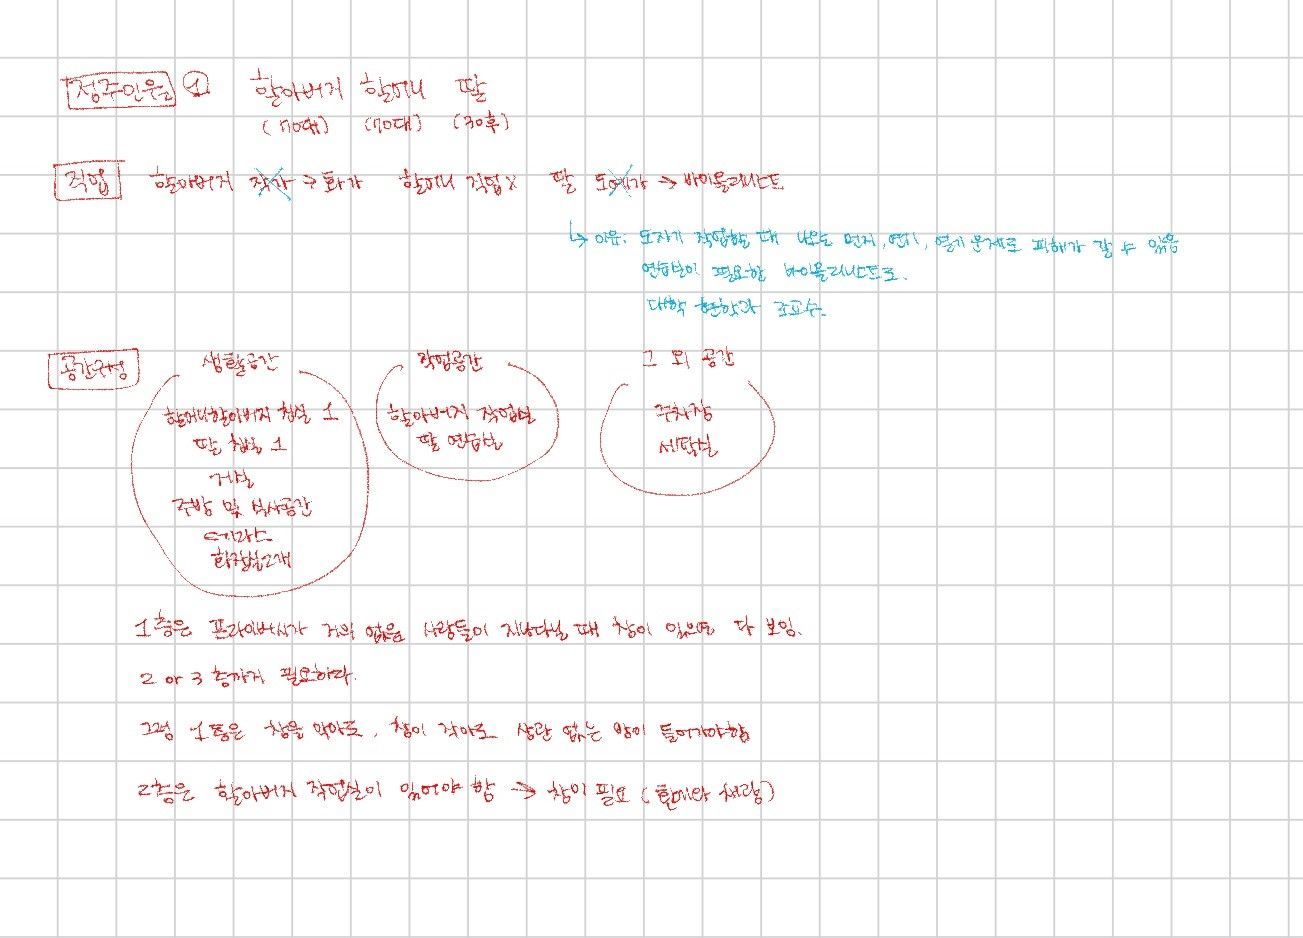 정주인원 ① 할아버지 할머니 딸
(70대) (70대) (30후)
직업 할아버지 작가 → 화가 할머니 직업 X 딸 도예가 → 바이올리니스트
↳ 이유: 도자기 작업할 때 나오는 먼지, 연기, 열기 문제로 피해가 갈 수 있음
연습실이 필요한 바이올리니스트로.
대학 현악과 조교수.
공간구성 생활공간 작업공간 그 외 공간
할머니할아버지 침실 1 할아버지 작업실 주차장
딸 침실 1 딸 연습실 세탁실
거실
주방 및 식사공간
테라스
화장실2개
1층은 프라이버시가 거의 없음 사람들이 지나다닐 때 창이 있으면 다 보임.
2 or 3 층까지 필요하다.
그럼 1층은 창을 막아도, 창이 작아도 상관 없는 방이 들어가야함
2층은 할아버지 작업실이 있어야 함 → 창이 필요 (환기와 채광)